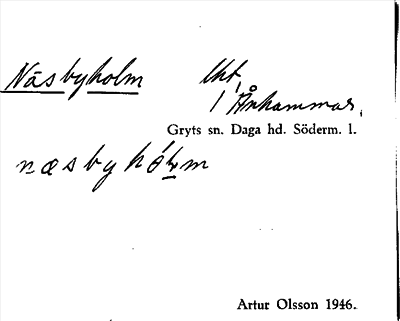 Näsbyholm
lht,
1 Ånhammar,
Gryts sn. Daga hd. Söderm. l.
næsbyhólm
Artur Olsson 1946.